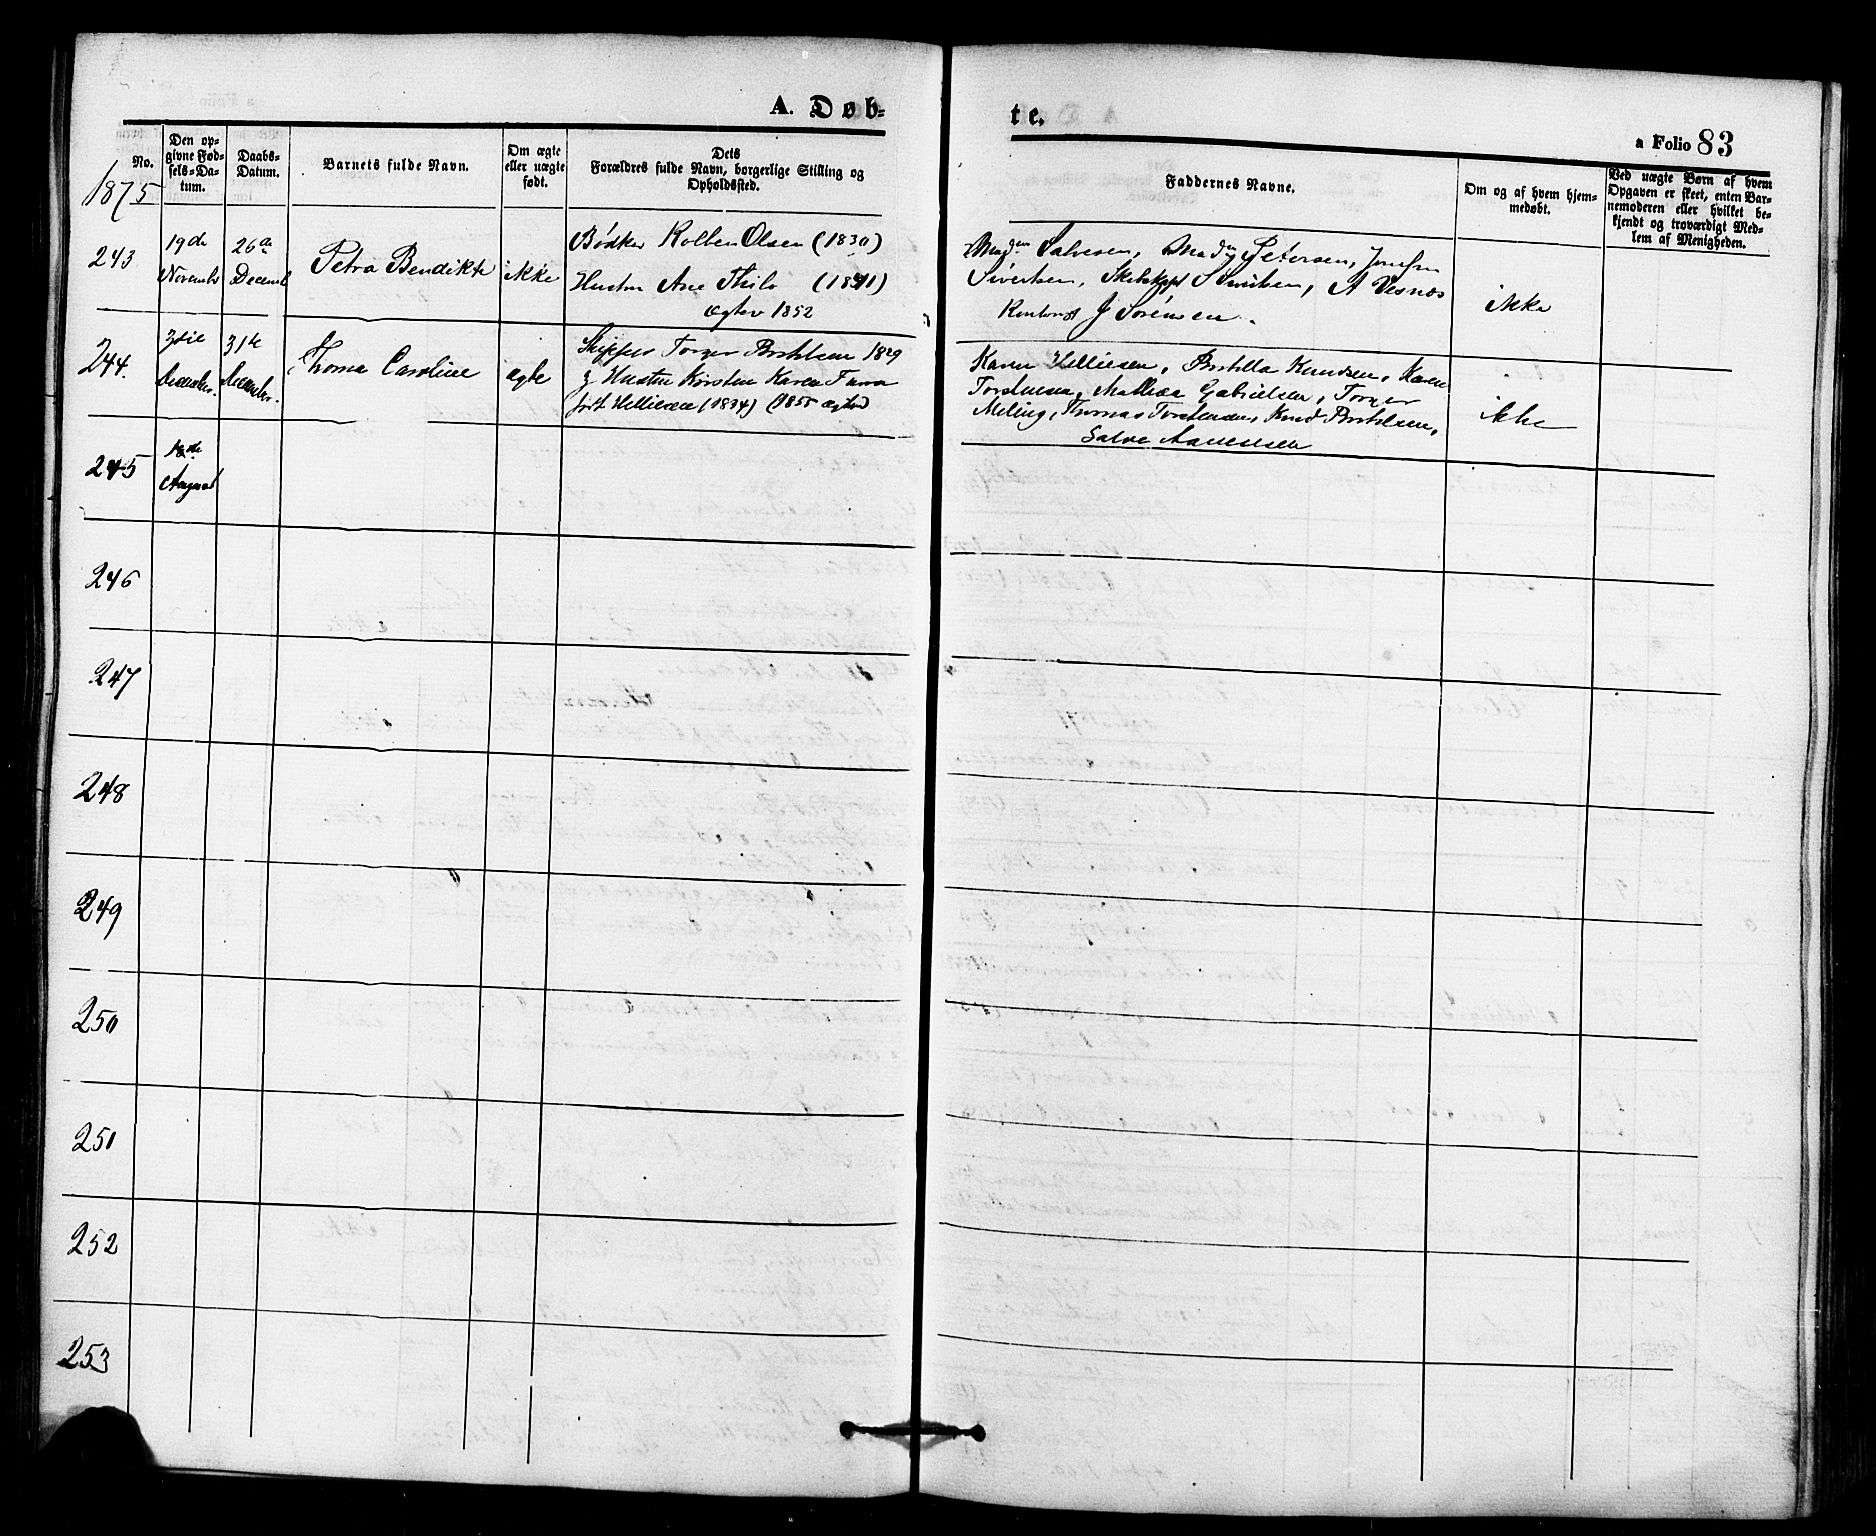 A. Døb-
te.
a Folio 83
1875
No.
Den op-
givne Fød-
sels-Da-
tum.
Daabs-
Datum.
Barnets fulde Navn.
Om ægte
eller uægte
født.
Dets
Forældres fulde Navn, borgerlige Stilling og
Opholdssted.
Faddernes Navne.
Om og af hvem hjem-
medøbt.
Ved uægte Børn af hvem
Opgaven er skeet, enten Bar-
nemoderen eller hvilket be-
kjendt og troværdigt Med-
lem af Menigheden.
243
19de
November
26de
Decemb
Petra Bendikte
ikke
Bødker Kolben Olsen (1830)
Hustru Ane Thilo
Ægtev 1852
Salvesen, Petersen,
Sivertsen,
J Sørensen.
ikke
244.
December.
31te
December.
Thoma Caroline
ægte
Skipper Torger 1829
Hustru Karen
Hellisen (1834) (1855
Karen Hellisen, Knudsen, Karen
Torstensen, Mathea Gabrielsen, Torger
Meling, Thomas Torstensen, Knud
Salve Aanensen
ikke
245
August
246
247
248
249
250
251
252
253